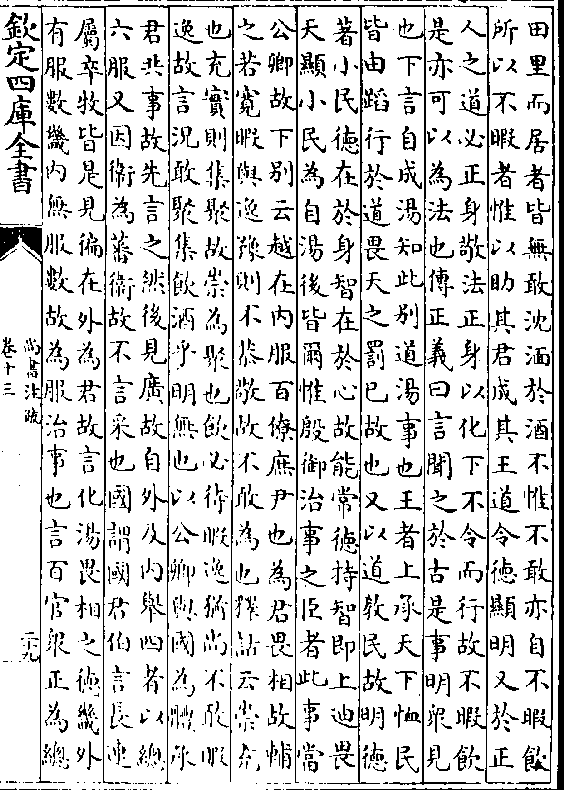 田里而居者皆無敢沈湎於酒不惟不敢亦自不暇飲
所以不暇者惟以助其君成其王道令德顯明又於正
人之道必正身敬法正身以化下不令而行故不暇飲
是亦可以為法也傳正義曰言聞之於古是事明衆見
也下言自成湯知此别道湯事也王者上承天下恤民
皆由蹈行於道畏天之罰已故也又以道教民故明德
著小民德在於身智在於心故能常德持智即上迪畏
天顯小民為自湯後皆爾惟殷御治事之臣者此事當
公卿故下别云越在内服百僚庶尹也為君畏相故輔
之若寛暇與逸豫則不恭敬故不敢為也釋詁云崇充
也充實則集聚故崇為聚也飲必待暇逸猶尚不敢暇
逸故言況敢聚集飲酒乎明無也以公卿與國為體承
君共事故先言之然後見廣故自外及内舉四者以總
六服又因衛為蕃衛故不言采也國謂國君伯言長連
屬卒牧皆是見徧在外為君故言化湯畏相之徳畿外
有服數畿内無服數故為服治事也言百官衆正為總
欽定四庫全書
尚書注疏
卷十三
二十九